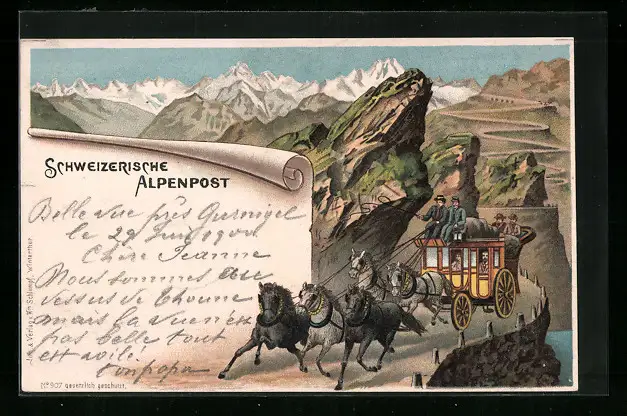 SCHWEIZERISCHE
ALPENPOST
Belle vue près Gurnigel
le 29 Juin 1900
Chère Jeanne
Nous sommes au
dessus de Thoune
mais la vue n'est
pas belle tout
est voilé
ton papa
Lith. & Verlag v. Schlumpf, Winterthur
No. 907 gesetzlich geschützt.